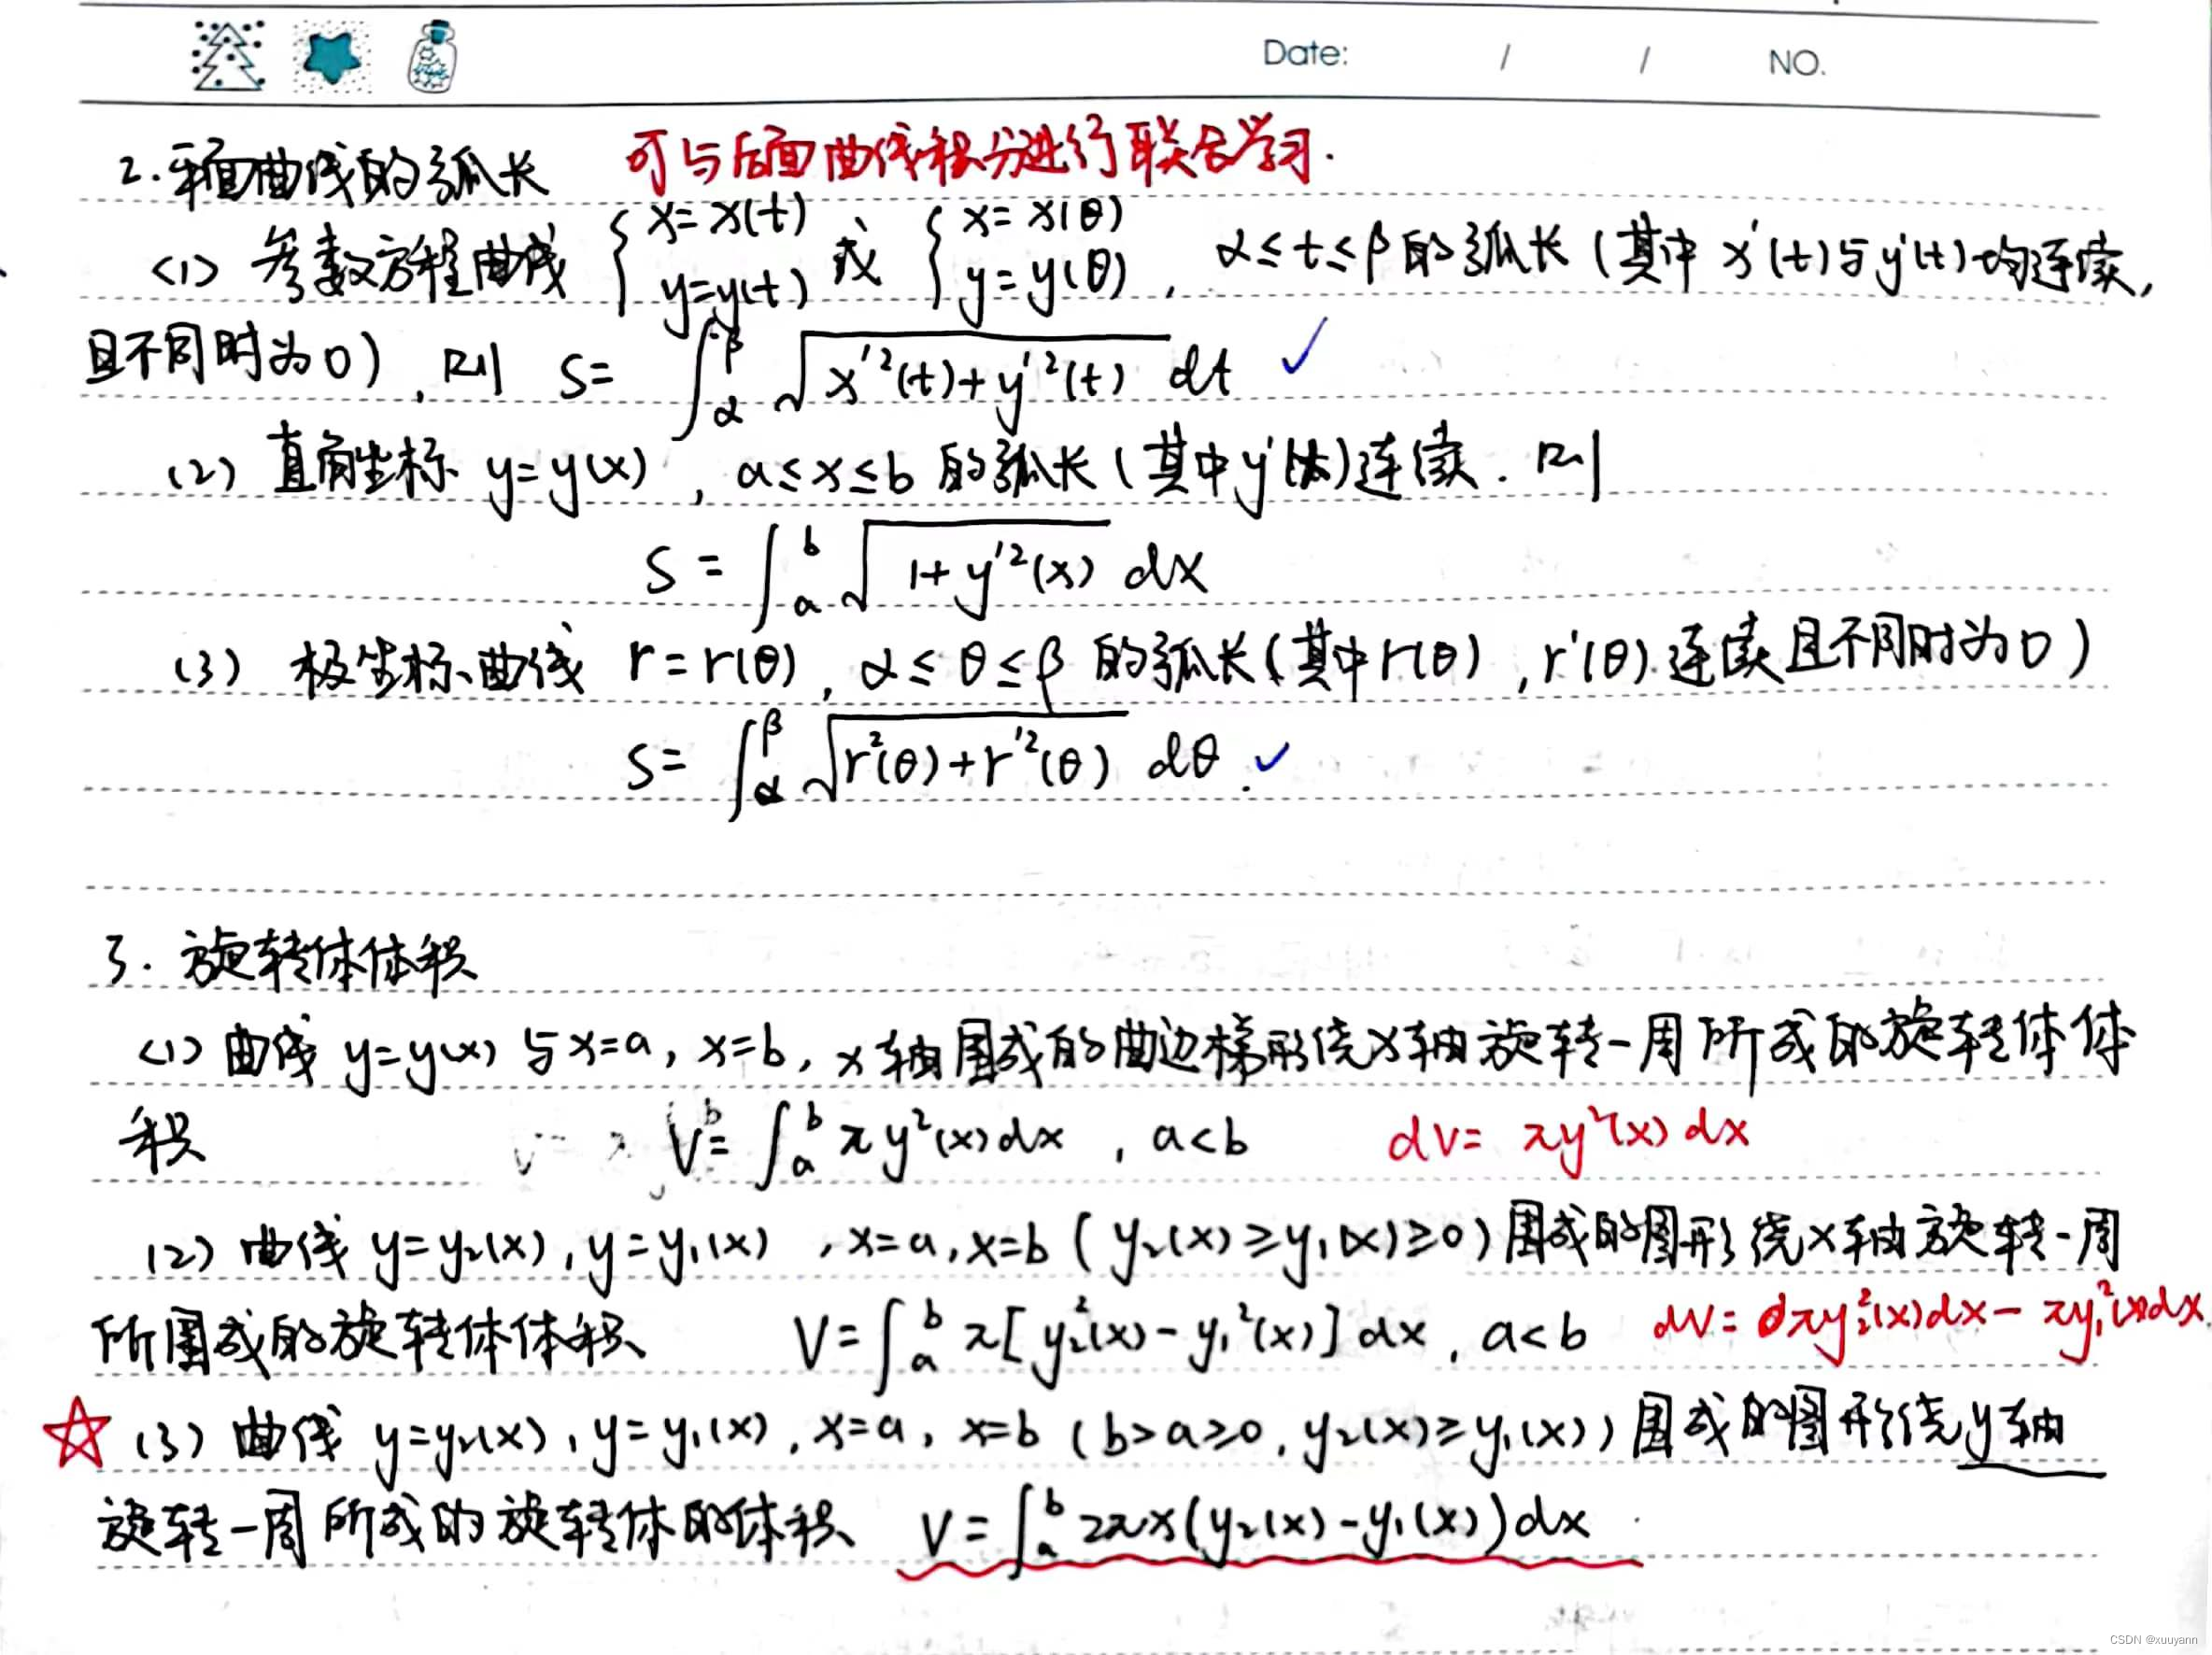 Date: / / NO.
2.平面曲线的弧长 可与后面曲线积分进行联合学习.
(1) 参数方程曲线 { x=x(t) y=y(t) 或 { x=x(θ) y=y(θ) , α≤t≤β的弧长(其中 x'(t)与y'(t)均连续,
且不同时为0), 则 S= ∫_α^β √(x'²(t)+y'²(t)) dt ✓
(2) 直角坐标 y=y(x) , a≤x≤b 的弧长(其中y'(x)连续. 则
S = ∫_a^b √(1+y'²(x)) dx
(3) 极坐标曲线 r=r(θ), α≤θ≤β 的弧长(其中r(θ) , r'(θ) 连续且不同时为0)
S= ∫_α^β √(r²(θ)+r'²(θ)) dθ. ✓
3. 旋转体体积
(1) 曲线 y=y(x) 与x=a, x=b, x轴围成的曲边梯形绕x轴旋转一周所成的旋转体体
积 V= ∫_a^b πy²(x)dx , a<b dV= πy²(x) dx
(2) 曲线 y=y₂(x), y=y₁(x) , x=a, x=b ( y₂(x)≥y₁(x)≥0)围成的图形绕x轴旋转一周
所围成的旋转体体积 V=∫_a^b π[y₂²(x)-y₁²(x)]dx, a<b dV= πy₂²(x)dx-πy₁²(x)dx
☆ (3) 曲线 y=y₂(x), y=y₁(x), x=a, x=b (b>a≥0, y₂(x)≥y₁(x))围成的图形绕y轴
旋转一周所成的旋转体的体积 V=∫_a^b 2πx(y₂(x)-y₁(x))dx
CSDN @xuuyann